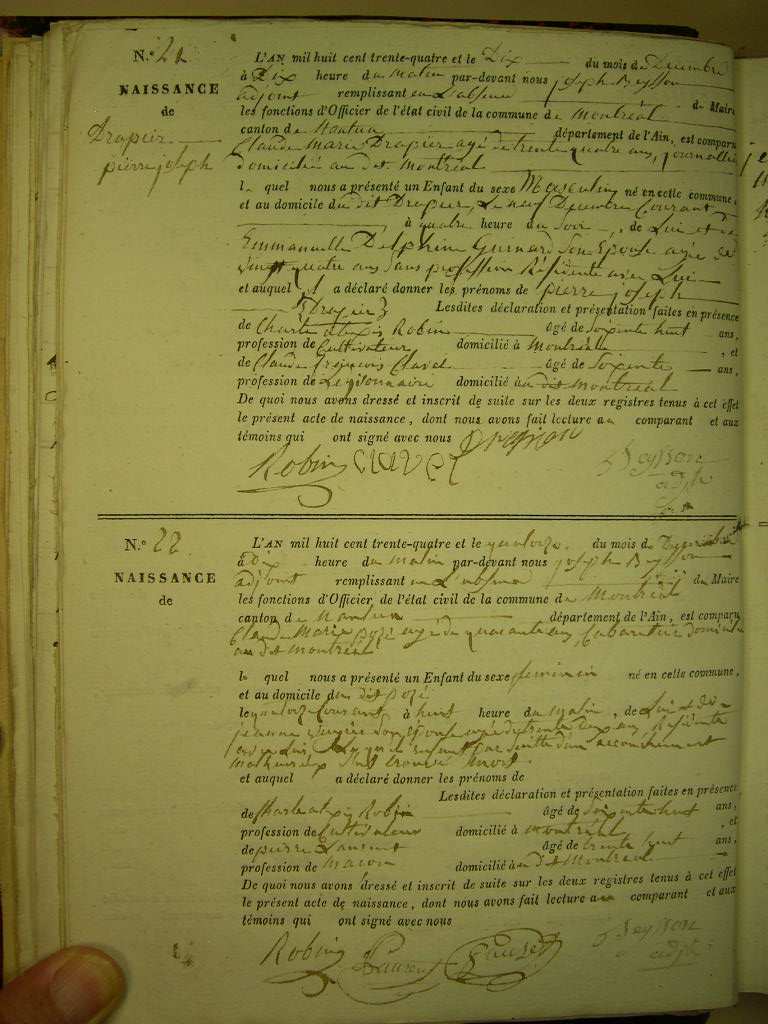 N.º 21
NAISSANCE
de
Drapier
pierre joseph
L'AN mil huit cent trente-quatre et le Dix du mois de Decembre
à Dix heure du Matin par-devant nous joseph Beysson
adjoint remplissant en L'absence du Maire
les fonctions d'Officier de l'état civil de la commune de Montréal
canton de Nantua département de l'Ain, est comparu
Claude Marie Drapier agé de trente quatre ans, journallier
domicilié au dit Montréal
le quel nous a présenté un Enfant du sexe Masculin né en celle commune,
et au domicile du dit Drapier, Le neuf Decembre Courant
à quatre heure du Soir, de Lui et de
Emmanuelle Delphine son Epouse agée de
vingt quatre ans sans profession Résidente avec Lui
et auquel il a déclaré donner les prénoms de pierre joseph
Drapier Lesdites déclaration et présentation faites en présence
de Charle Robin agé de soixente huit ans,
profession de Cultivateur domicilié à Montréal , et
de Claude françois Clavel âgé de soixente ans,
profession de domicilié au dit Montréal
De quoi nous avons dressé et inscrit de suite sur les deux registres tenus à cet effet
le présent acte de naissance, dont nous avons fait lecture au comparant et aux
témoins qui ont signé avec nous
Robin CLAVEL Beysson
adjt
N.º 22
NAISSANCE
de
L'AN mil huit cent trente-quatre et le quatorze du mois de
à Dix heure du Matin par-devant nous joseph Beysson
adjoint remplissant en L'absence du Maire
les fonctions d'Officier de l'état civil de la commune de Montréal
canton de Nantua département de l'Ain, est comparu
Claude Marie agé de quarante ans, Cabaretier domicilié
au dit Montréal
le quel nous a présenté un Enfant du sexe feminin né en celle commune,
et au domicile du dit
le quatorze Courant à huit heure du Matin, de Lui et de
jeanne son Epouse agée de trente ans Résidente
avec Lui, Lequel enfant par suitte d'un accouchement
malheureux s'est trouvé mort.
et auquel a déclaré donner les prénoms de
Lesdites déclaration et présentation faites en présence
de Charle Robin âgé de soixente huit ans,
profession de Cultivateur domicilié à Montréal , et
de pierre Laurent âgé de trente huit ans,
profession de Macon domicilié au dit Montréal
De quoi nous avons dressé et inscrit de suite sur les deux registres tenus à cet effet
le présent acte de naissance, dont nous avons fait lecture au comparant et aux
témoins qui ont signé avec nous
Robin Laurent Beysson
adjt